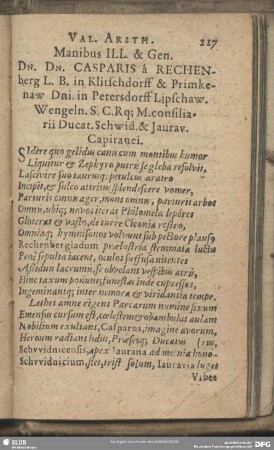 VAL. ARITH. 227
Manibus ILL. & Gen.
DN. DN. CASPARIS á RECHEN-
berg L. B. in Klitschdorff & Primke-
naw Dni. in Petersdorff Lipschaw.
Wengeln. S. C. Rq; M. consilia-
rii Ducat. Schwid. & Jaurav.
Capitanei.
Sidere quo gelidu canis cum montibus humor
Liquitur & Zephyro putris se gleba resolvit,
Lascivire suo taurusq; petulcus aratro
Incipit, & sulco attritus splendescere vomer,
Parturit omnis ager, mons omnis, parturit arbos
Omnis, ubiq; novos iterat Philomela lepôres
Gloterat & vasto, de turre Ciconia rostro,
Omniaq; hymnisonos volvunt sub pectore plausus
Rechenbergiadum prælustria stemmata luctu
Penè sepulta jacent, oculos suffusa nitentes
Assiduis lacrumis, se obvelant vestibus atris,
Hinc taxum ponunt, funestas inde cupressos,
Ingeminantq; inter nemora & viridantia tempe.
Lethes amne rigens Parcarum numine sixum
Emensus cursum est, cœlestem & obambulat aulam
Nobilium exultans, Casparus, imagine avorum,
Heroum radians sidus, Præsesq; Ducatus
Schvvidnicensis, apex Jaurana ad mœnia
Schvvidnicium, flet, trist solum, Jauravia luges
Vibes